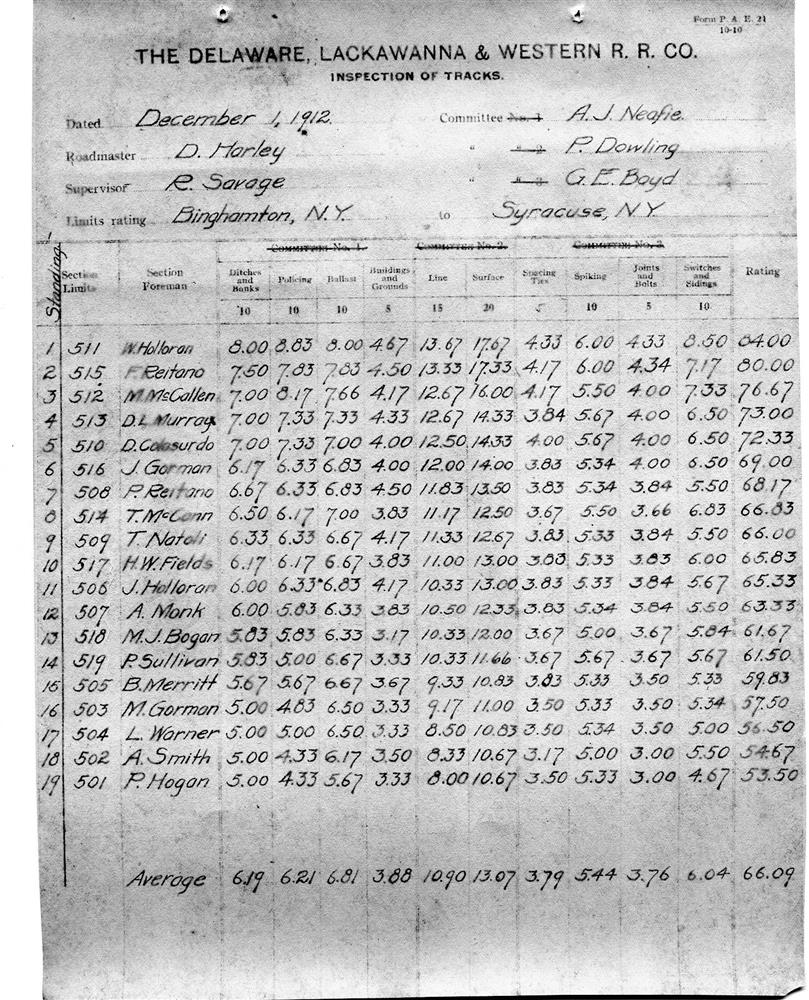 Form P. A. E. 21
10-10
THE DELAWARE, LACKAWANNA & WESTERN R. R. CO.
INSPECTION OF TRACKS.
Dated December 1, 1912. Committee No. 1 A. J. Neafie.
Roadmaster D. Harley " " 2 P. Dowling
Supervisor R. Savage " " 3 G. E. Boyd
Limits rating Binghamton, N.Y. to Syracuse, N.Y.
COMMITTEE NO. 1. COMMITTEE NO. 2. COMMITTEE NO. 3
Standing- Section Limits Section Foreman Ditches and Banks Policing Ballast Buildings and Grounds Line Surface Spacing Ties Spiking Joints and Bolts Switches and Sidings Rating
10 10 10 5 15 20 5 10 5 10
1 511 W. Holloran 8.00 8.83 8.00 4.67 13.67 17.67 4.33 6.00 4.33 8.50 84.00
2 515 F. Reitano 7.50 7.83 7.83 4.50 13.33 17.33 4.17 6.00 4.34 7.17 80.00
3 512 M. McCallen 7.00 8.17 7.66 4.17 12.67 16.00 4.17 5.50 4.00 7.33 76.67
4 513 D.L. Murray 7.00 7.33 7.33 4.33 12.67 14.33 3.84 5.67 4.00 6.50 73.00
5 510 D. Colasurdo 7.00 7.33 7.00 4.00 12.50 14.33 4.00 5.67 4.00 6.50 72.33
6 516 J. Gorman 6.17 6.33 6.83 4.00 12.00 14.00 3.83 5.34 4.00 6.50 69.00
7 508 P. Reitano 6.67 6.33 6.83 4.50 11.83 13.50 3.83 5.34 3.84 5.50 68.17
8 514 T. McCann 6.50 6.17 7.00 3.83 11.17 12.50 3.67 5.50 3.66 6.83 66.83
9 509 T. Natoli 6.33 6.33 6.67 4.17 11.33 12.67 3.83 5.33 3.84 5.50 66.00
10 517 H.W. Fields 6.17 6.17 6.67 3.83 11.00 13.00 3.83 5.33 3.83 6.00 65.83
11 506 J. Holloran 6.00 6.33 6.83 4.17 10.33 13.00 3.83 5.33 3.84 5.67 65.33
12 507 A. Monk 6.00 5.83 6.33 3.83 10.50 12.33 3.83 5.34 3.84 5.50 63.33
13 518 M.J. Bogan 5.83 5.83 6.33 3.17 10.33 12.00 3.67 5.00 3.67 5.84 61.67
14 519 P. Sullivan 5.83 5.00 6.67 3.33 10.33 11.66 3.67 5.67 3.67 5.67 61.50
15 505 B. Merritt 5.67 5.67 6.67 3.67 9.33 10.83 3.83 5.33 3.50 5.33 59.83
16 503 M. Gorman 5.00 4.83 6.50 3.33 9.17 11.00 3.50 5.33 3.50 5.34 57.50
17 504 L. Warner 5.00 5.00 6.50 3.33 8.50 10.83 3.50 5.34 3.50 5.00 56.50
18 502 A. Smith 5.00 4.33 6.17 3.50 8.33 10.67 3.17 5.00 3.00 5.50 54.67
19 501 P. Hogan 5.00 4.33 5.67 3.33 8.00 10.67 3.50 5.33 3.00 4.67 53.50
Average 6.19 6.21 6.81 3.88 10.90 13.07 3.79 5.44 3.76 6.04 66.09